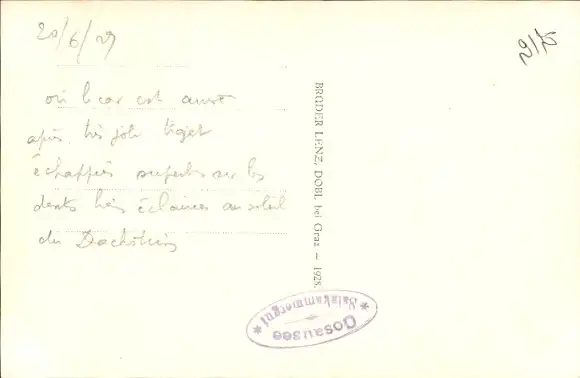 20/6/29
où le car est arrivé
après très joli trajet
échappées superbes sur les
dents très éclairées au soleil
du Dachstein
BRÜDER LENZ, DOBL bei Graz – 1928.
* Gosausee *
Salzkammergut